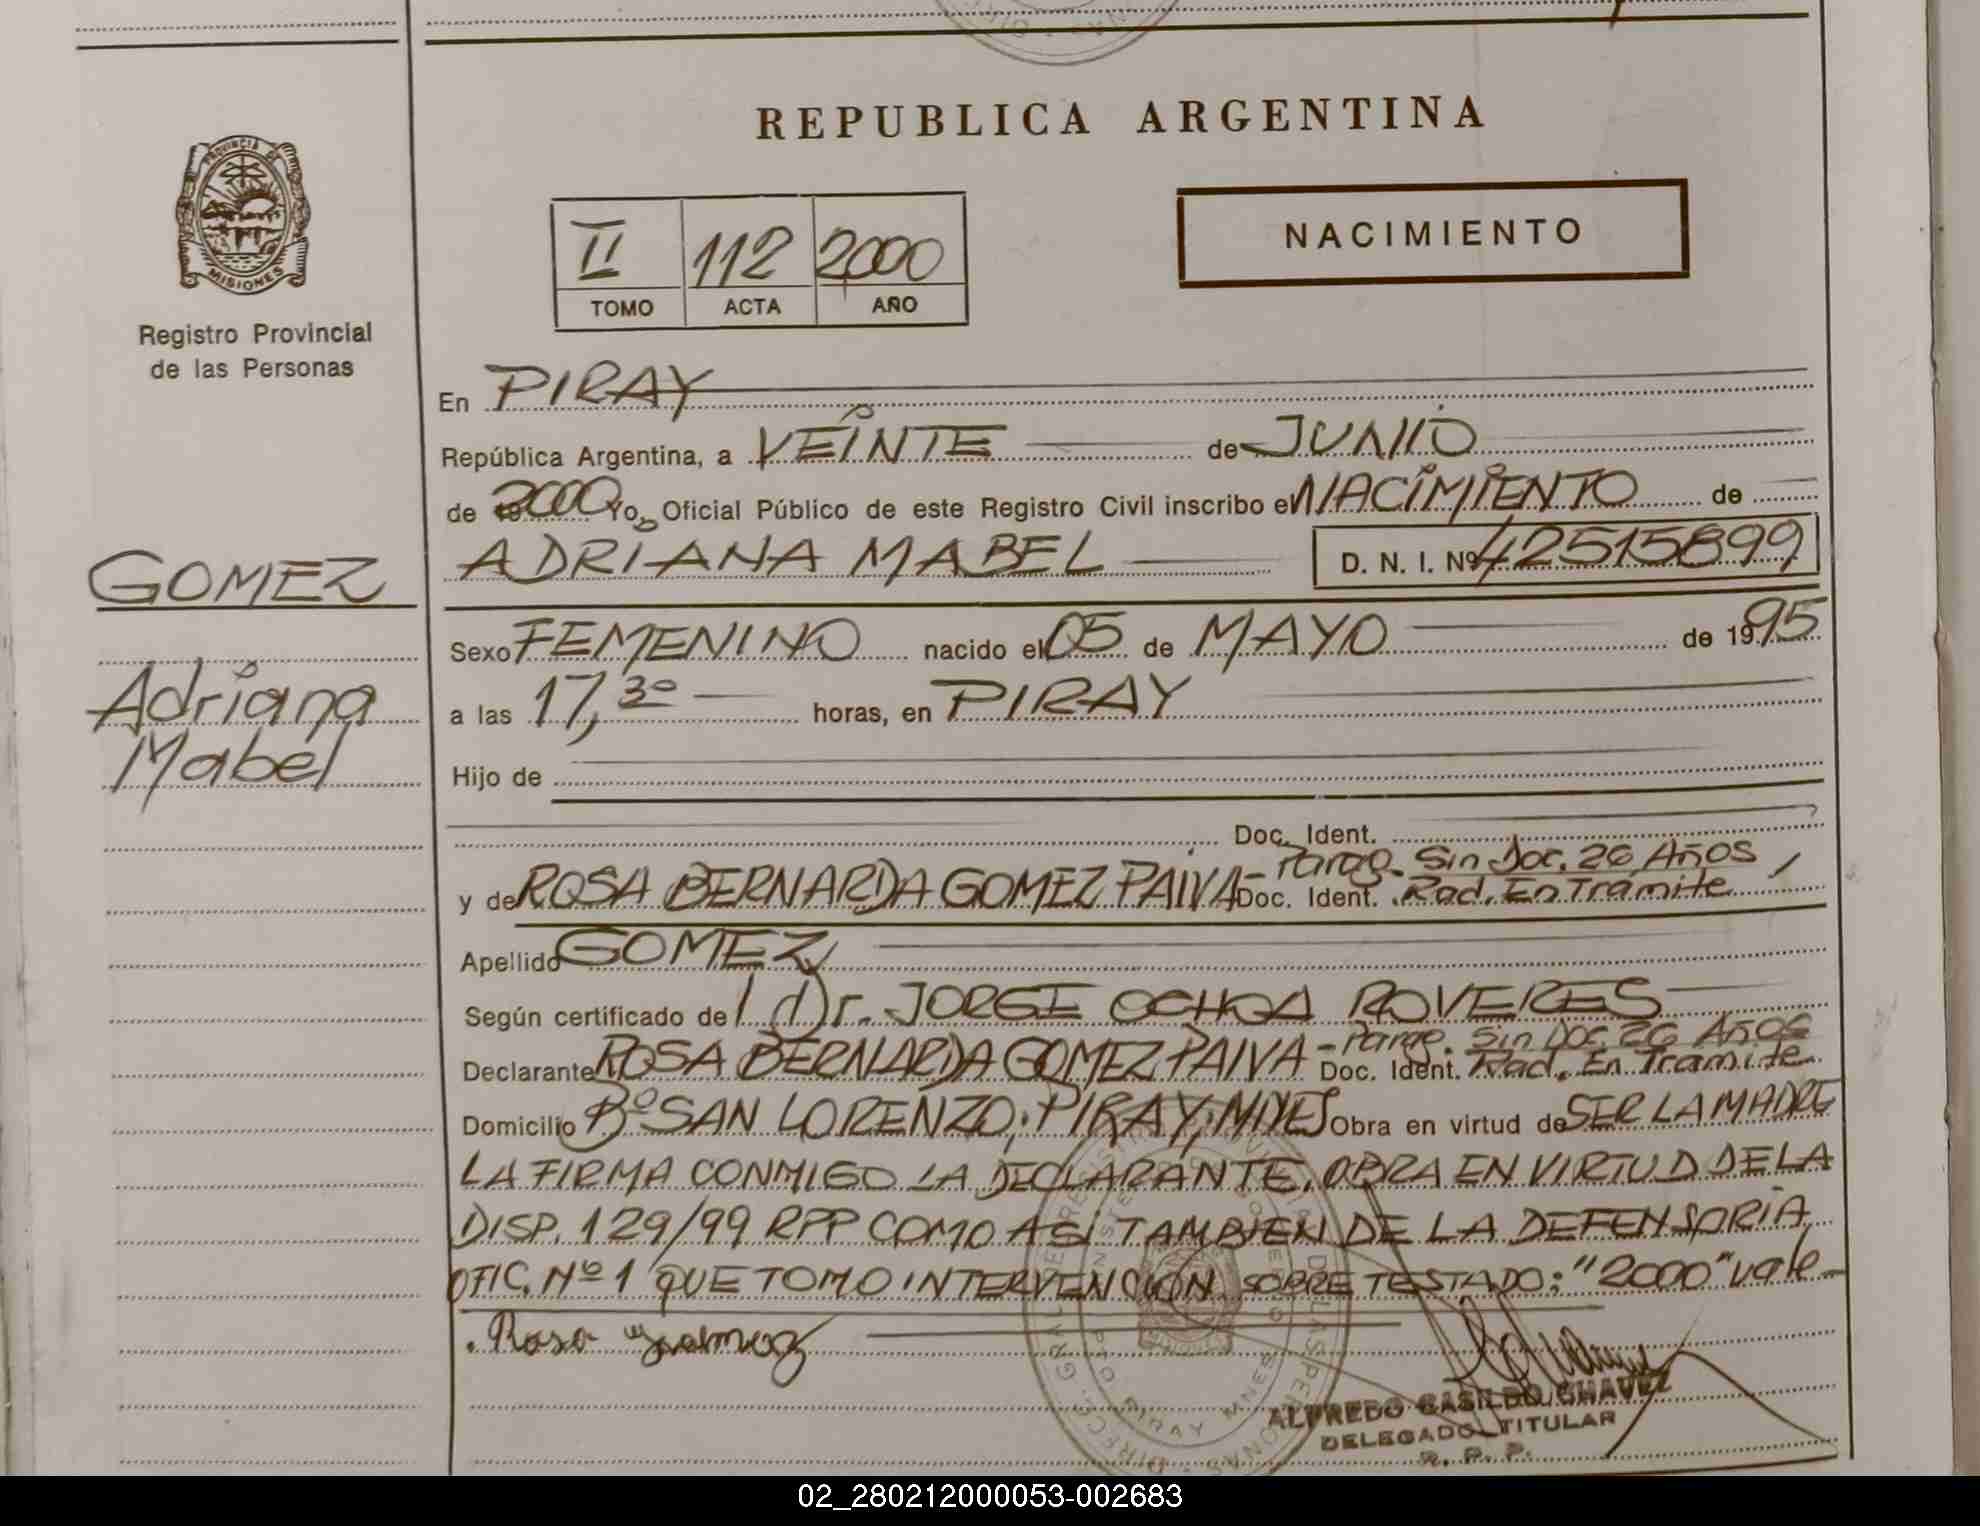 REPUBLICA ARGENTINA
PROVINCIA DE
MISIONES
Registro Provincial
de las Personas
II 112 2000
TOMO ACTA AÑO
NACIMIENTO
En PIRAY
República Argentina, a VEINTE de JUNIO
de 2000 Yo, Oficial Público de este Registro Civil inscribo el NACIMIENTO de
ADRIANA MABEL D. N. I. Nº 42515899
GOMEZ
Adriana
Mabel
Sexo FEMENINO nacido el 05 de MAYO de 1995
a las 17,30 horas, en PIRAY
Hijo de
Doc. Ident.
y de ROSA BERNARDA GOMEZ PAIVA - Parag. Sin Doc. 26 Años
Doc. Ident. Rad. En Trámite
Apellido GOMEZ
Según certificado del Dr. JORGE OCHOA ROVERES
Declarante ROSA BERNARDA GOMEZ PAIVA - Parag. Sin Doc. 26 Años
Doc. Ident. Rad. En Tramite
Domicilio Bº SAN LORENZO; PIRAY; MNES Obra en virtud de SER LA MADRE
LA FIRMA CONMIGO LA DECLARANTE. OBRA EN VIRTUD DE LA
DISP. 129/99 RPP COMO ASÍ TAMBIEN DE LA DEFENSORIA
OFIC. Nº 1 QUE TOMO INTERVENCION. SOBRE TESTADO: "2000" vale
Rosa gomez
ALFREDO CASILDO CHAVEZ
DELEGADO TITULAR
R. P. P.
PIRAY MNES
02_280212000053-002683